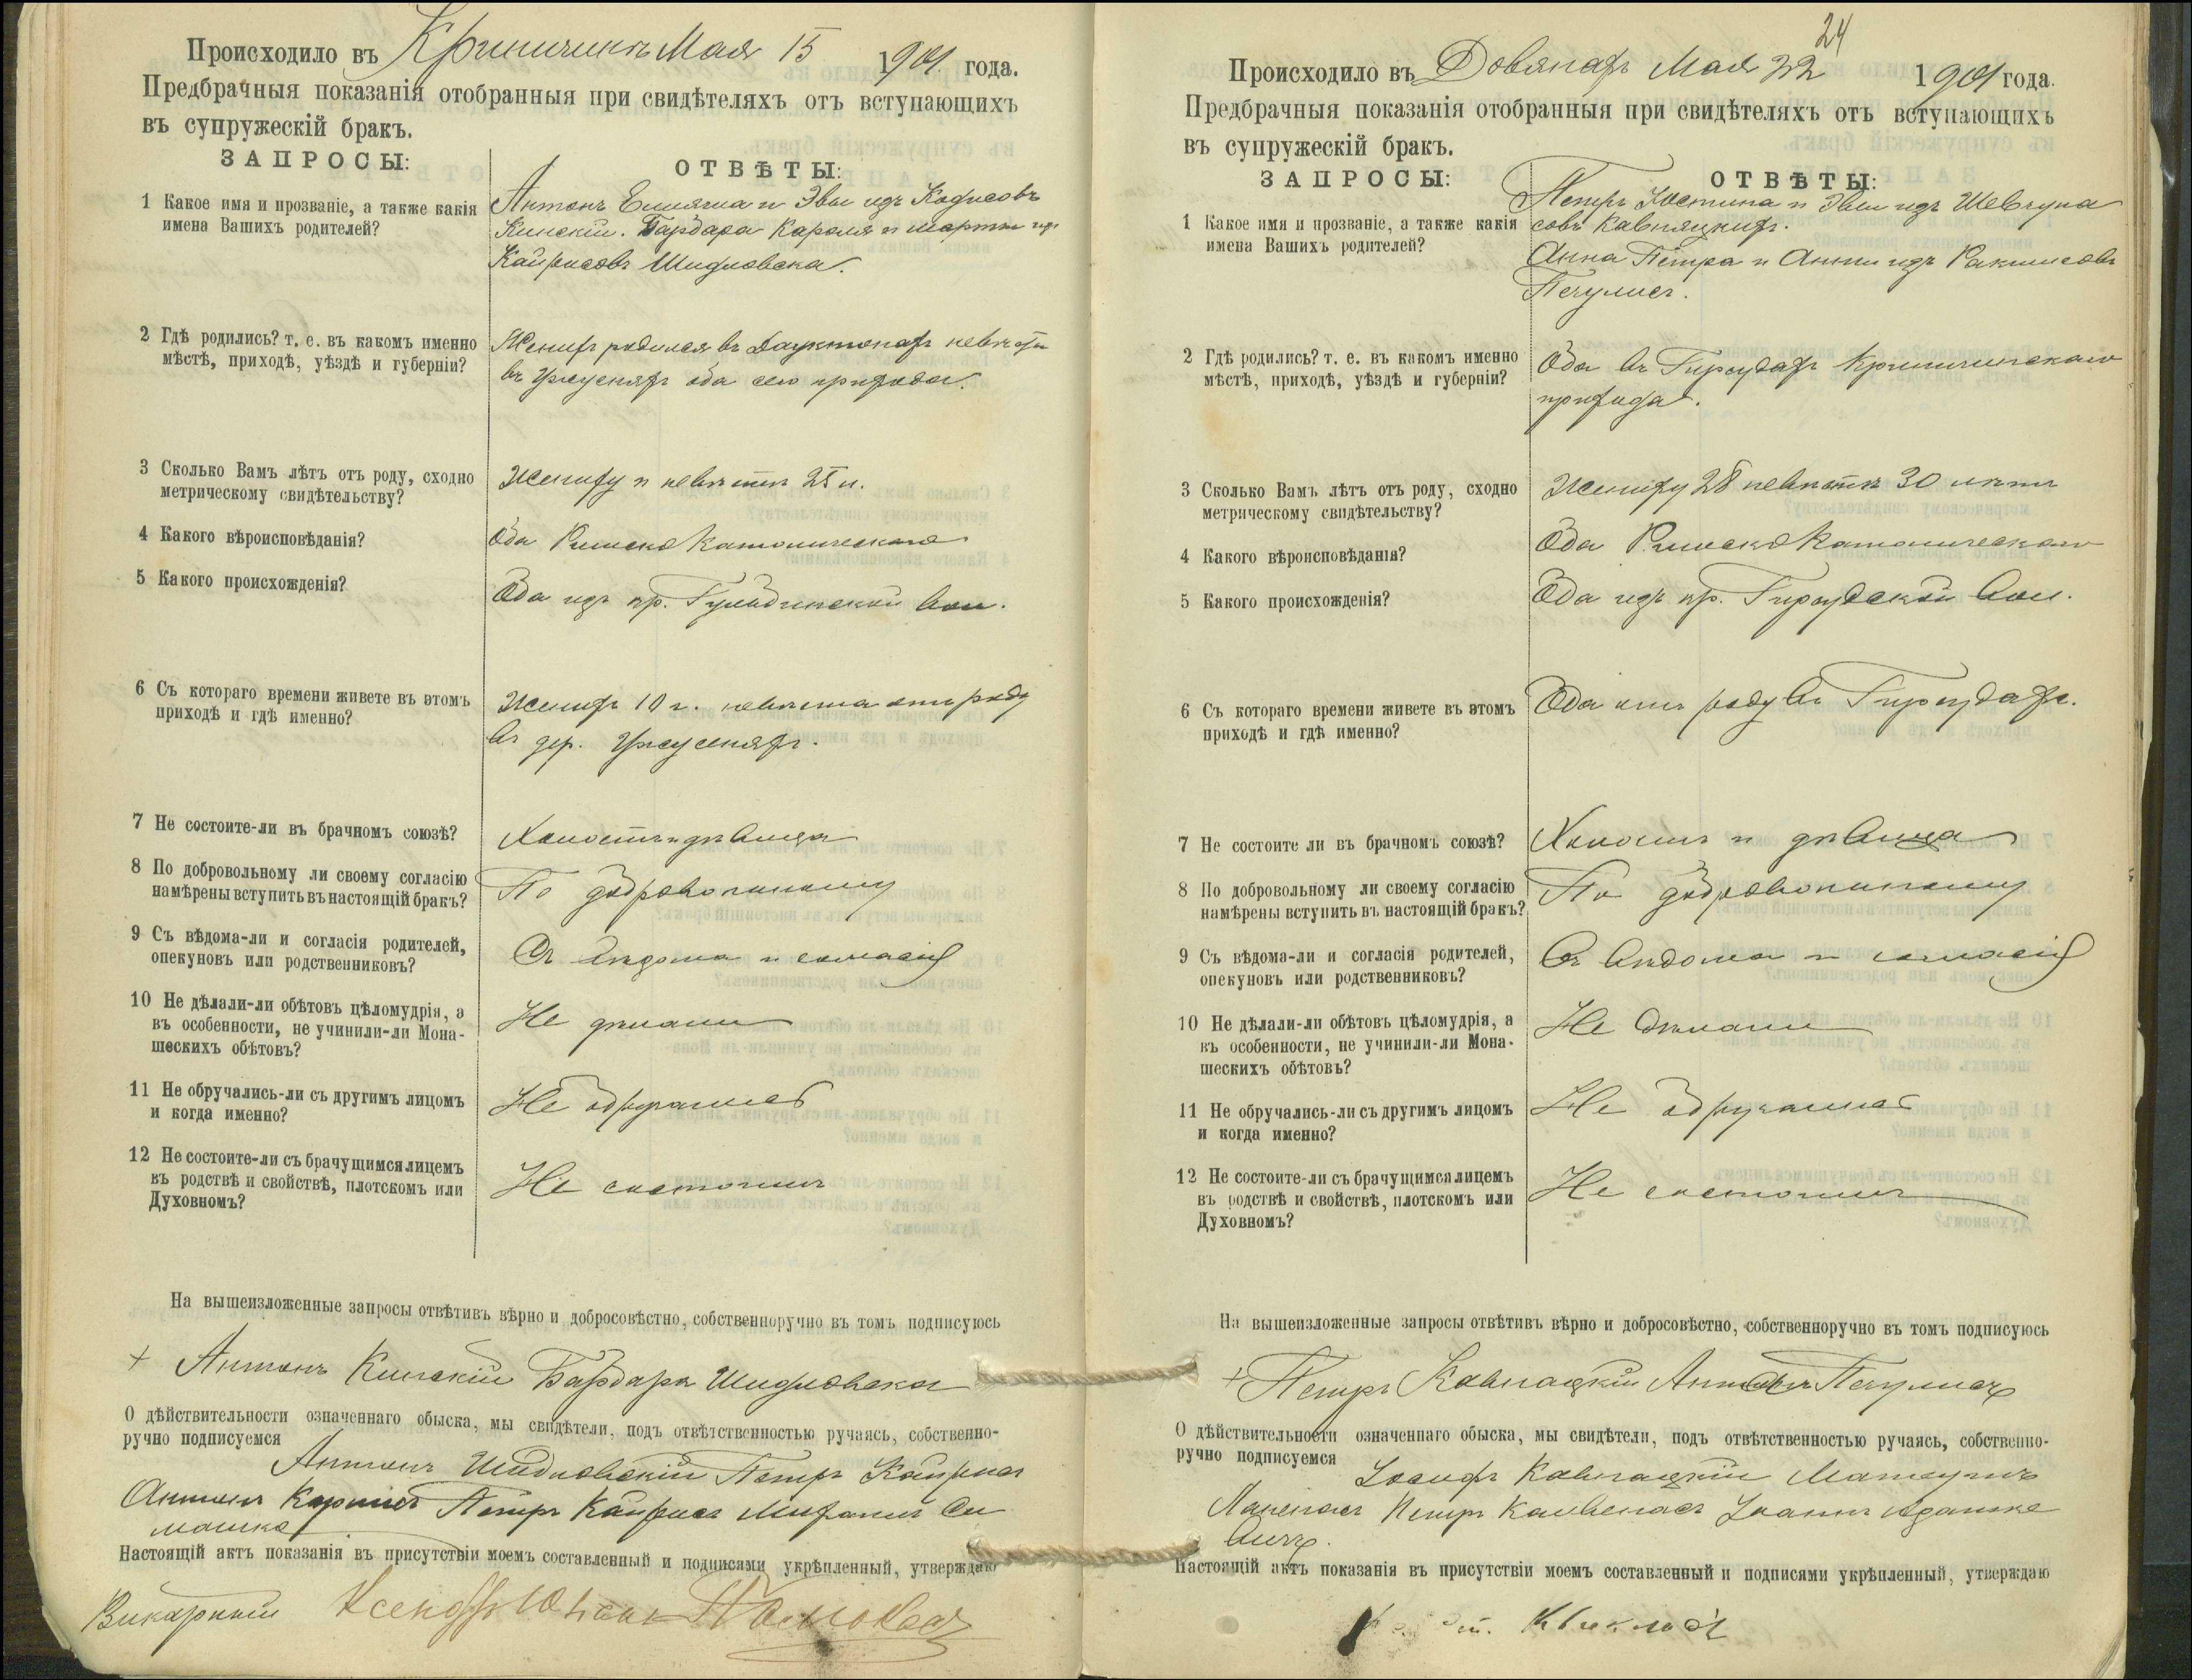 Происходило въ Криничинъ Мая 15 1901 года.
Предбрачныя показанія отобранныя при свидѣтеляхъ отъ вступающихъ
въ супружескій бракъ.
ЗАПРОСЫ:
ОТВѢТЫ:
1 Какое имя и прозваніе, а также какія
имена Вашихъ родителей?
Антонъ и Эвы изъ
Кинскій. Барбара Кароля и Марты изъ
Кайрисовъ Шидловска.
2 Гдѣ родились? т. е. въ какомъ именно
мѣстѣ, приходѣ, уѣздѣ и губерніи?
Женихъ родился въ невѣста
въ оба сего прихода.
3 Сколько Вамъ лѣтъ отъ роду, сходно
метрическому свидѣтельству?
Жениху и невѣстѣ 25 л.
4 Какого вѣроисповѣданія?
Оба Римско Католическаго
5 Какого происхожденія?
Оба изъ кр. вол.
6 Съ котораго времени живете въ этомъ
приходѣ и гдѣ именно?
Женихъ 10 г. невѣста отъ роду
въ дер.
7 Не состоите-ли въ брачномъ союзѣ?
Холостъ и дѣвица
8 По добровольному ли своему согласію
намѣрены вступить въ настоящій бракъ?
По добровольному
9 Съ вѣдома-ли и согласія родителей,
опекуновъ или родственниковъ?
Съ вѣдома и согласія
10 Не дѣлали-ли обѣтовъ цѣломудрія, а
въ особенности, не учинили-ли Мона-
шескихъ обѣтовъ?
Не дѣлали
11 Не обручались-ли съ другимъ лицомъ
и когда именно?
Не обручались
12 Не состоите-ли съ брачущимся лицемъ
въ родствѣ и свойствѣ, плотскомъ или
Духовномъ?
Не состоимъ
На вышеизложенные запросы отвѣтивъ вѣрно и добросовѣстно, собственноручно въ томъ подписуюсь
+ Антонъ Кинскій Барбара Шидловска
О дѣйствительности означеннаго обыска, мы свидѣтели, подъ отвѣтственностью ручаясь, собственно-
ручно подписуемся
Антонъ Шидловскій Петръ Кайрисъ
Антонъ Петръ Кайрисъ
Настоящій актъ показанія въ присутствіи моемъ составленный и подписями укрѣпленный, утверждаю
Викарный Ксендзъ
24
Происходило въ Довянахъ Мая 22 1901 года.
Предбрачныя показанія отобранныя при свидѣтеляхъ отъ вступающихъ
въ супружескій бракъ.
ЗАПРОСЫ:
ОТВѢТЫ:
1 Какое имя и прозваніе, а также какія
имена Вашихъ родителей?
Петръ Юстина и Эвы изъ
совъ
Анна Петра и Анны изъ
Печулисъ.
2 Гдѣ родились? т. е. въ какомъ именно
мѣстѣ, приходѣ, уѣздѣ и губерніи?
Оба въ Гирсудахъ Криничинскаго
прихода.
3 Сколько Вамъ лѣтъ отъ роду, сходно
метрическому свидѣтельству?
Жениху 28 невѣстѣ 30 лѣтъ
4 Какого вѣроисповѣданія?
Оба Римско Католическаго
5 Какого происхожденія?
Оба изъ кр. Гирсудской вол.
6 Съ котораго времени живете въ этомъ
приходѣ и гдѣ именно?
Оба отъ роду въ Гирсудахъ.
7 Не состоите ли въ брачномъ союзѣ?
Холостъ и дѣвица
8 По добровольному ли своему согласію
намѣрены вступить въ настоящій бракъ?
По добровольному
9 Съ вѣдома-ли и согласія родителей,
опекуновъ или родственниковъ?
Съ вѣдома и согласія
10 Не дѣлали-ли обѣтовъ цѣломудрія, а
въ особенности, не учинили-ли Мона-
шескихъ обѣтовъ?
Не дѣлали
11 Не обручались-ли съ другимъ лицомъ
и когда именно?
Не обручались
12 Не состоите-ли съ брачущимся лицемъ
въ родствѣ и свойствѣ, плотскомъ или
Духовномъ?
Не состоимъ
На вышеизложенные запросы отвѣтивъ вѣрно и добросовѣстно, собственноручно въ томъ подписуюсь
+ Петръ
О дѣйствительности означеннаго обыска, мы свидѣтели, подъ отвѣтственностью ручаясь, собственно-
ручно подписуемся
Іосифъ
Петръ Іоаннъ Адашке
вичъ.
Настоящій актъ показанія въ присутствіи моемъ составленный и подписями укрѣпленный, утверждаю